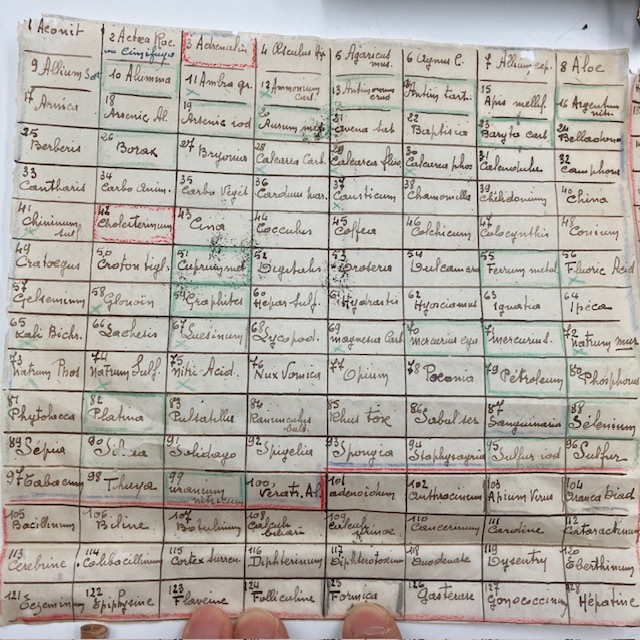 1 Aconit
2 Actea Rac.
ou Cimifuga
3 Adrenalin
4 Æsculus Hip
5 Agaricus
mus.
6 Agnus C.
7 Allium cep.
8 Aloe
9 Allium Sat
10 Alumma
11 Ambra gr.
12 Ammonium
Carb.
13 Antimonium
crud
Antim tart.
15
Apis mellif.
16 Argentum
nitr.
17 Arnica
18
Arsenic Al.
19
Arsenic iod
20
Aurum met
21
avena sat
22
Baptisia
23
Baryta carb
24
Belladona
25
Berberis
26
Borax
27 Bryonia
28
Calcarea Carb.
29
Calcarea fluo
30
Calcarea phos
31
Calendula
32
Camphora
33
Cantharis
34
Carbo anim.
35
Carbo Végét
36
Carduus mar.
37
Causticum
38
Chamomilla
39
Chélidonium
40
China
41
Chininum
sul
42
Cholesterinum
43
Cina
44
Cocculus
45
Coffea
46
Colchicum
47
Colocynthis
48
Conium
49
Crataegus
50
Croton tigl.
51
Cuprum met
52
Digitalis
53
Drosera
54
Dulcamara
55
Ferrum metal
56
Fluoric Acid
57
Gelsemium
58
Glonoïn
59
Graphites
60
Hepar sulf.
61
Hydrastis
62
Hyosciamus
63
Ignatia
64
Ipéca
65
Kali Bichr.
66
Lachesis
67
Luesinum
68
Lycopod.
69
magnesia Carb
70
mercurius cya
71
mercurius S.
72
natrum mur
73
Natrum Phos
74
Natrum Sulf.
75
Nitri Acid.
76
Nux Vomica
77
Opium
78 Paeonia
79
Pétroleum
80
Phosphorus
81
Phytolacca
82
Platina
83
Pulsatilla
84
Ranunculus
bulb.
85
Rhus tox
86
Sabal ser
87
Sanguinaria
88
Sélénium
89
Sépia
90
Silicea
91
Solidago
92
Spigelia
93
Spongia
94
Staphysagria
95
Sulfur iod
96
Sulfur
97
Tabacum
98
Thuya
99
uranium
nitricum
100
Veratr. Al.
101
adenoïdum
102
anthracinum
103
Apium Virus
104
Aranea Diad
105
Bacillinum
106
Biline
107
Botulinum
108
Calculi
biliari
109
Calculi
urinae
110
Cancerinum
111
Cardine
112
Cataractinum
113
Cérébrine
114
Colibacillinum
115
Cortex surren.
116
Diphterinum
117
Diphterotoxinum
118
Duodenate
119
Dysentry
120
Eberthinum
121
Eczeminum
122
Epiphysine
123
Flaveine
124
Folliculine
125
Formica
126
Gasterase
127
Gonococcinum
128
Hépatine